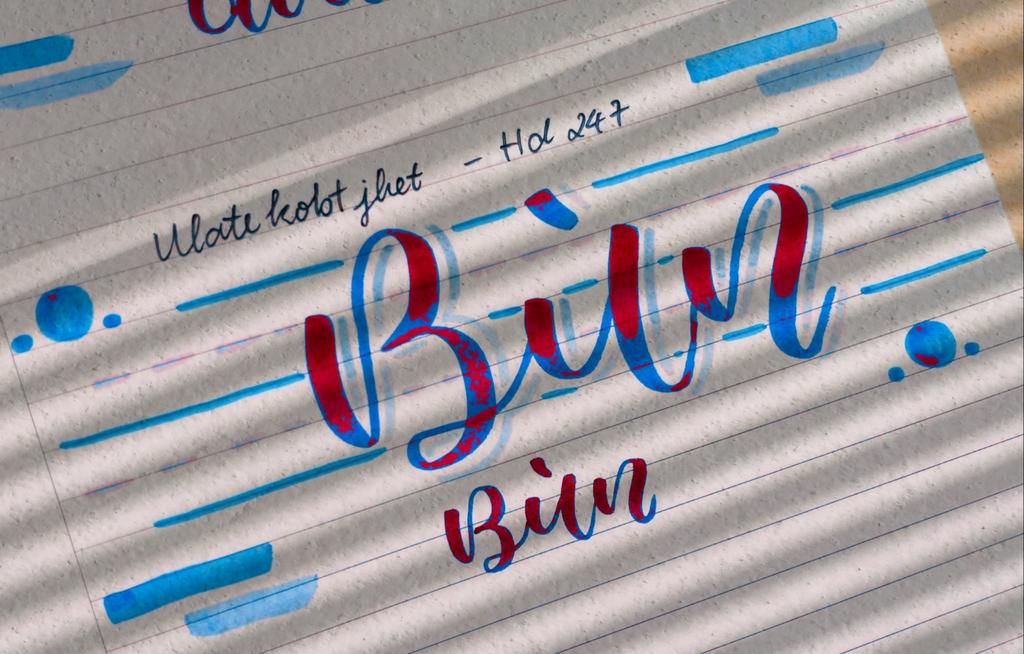 Ulate kobt jhet - Hd 247
Bùn
Bùn